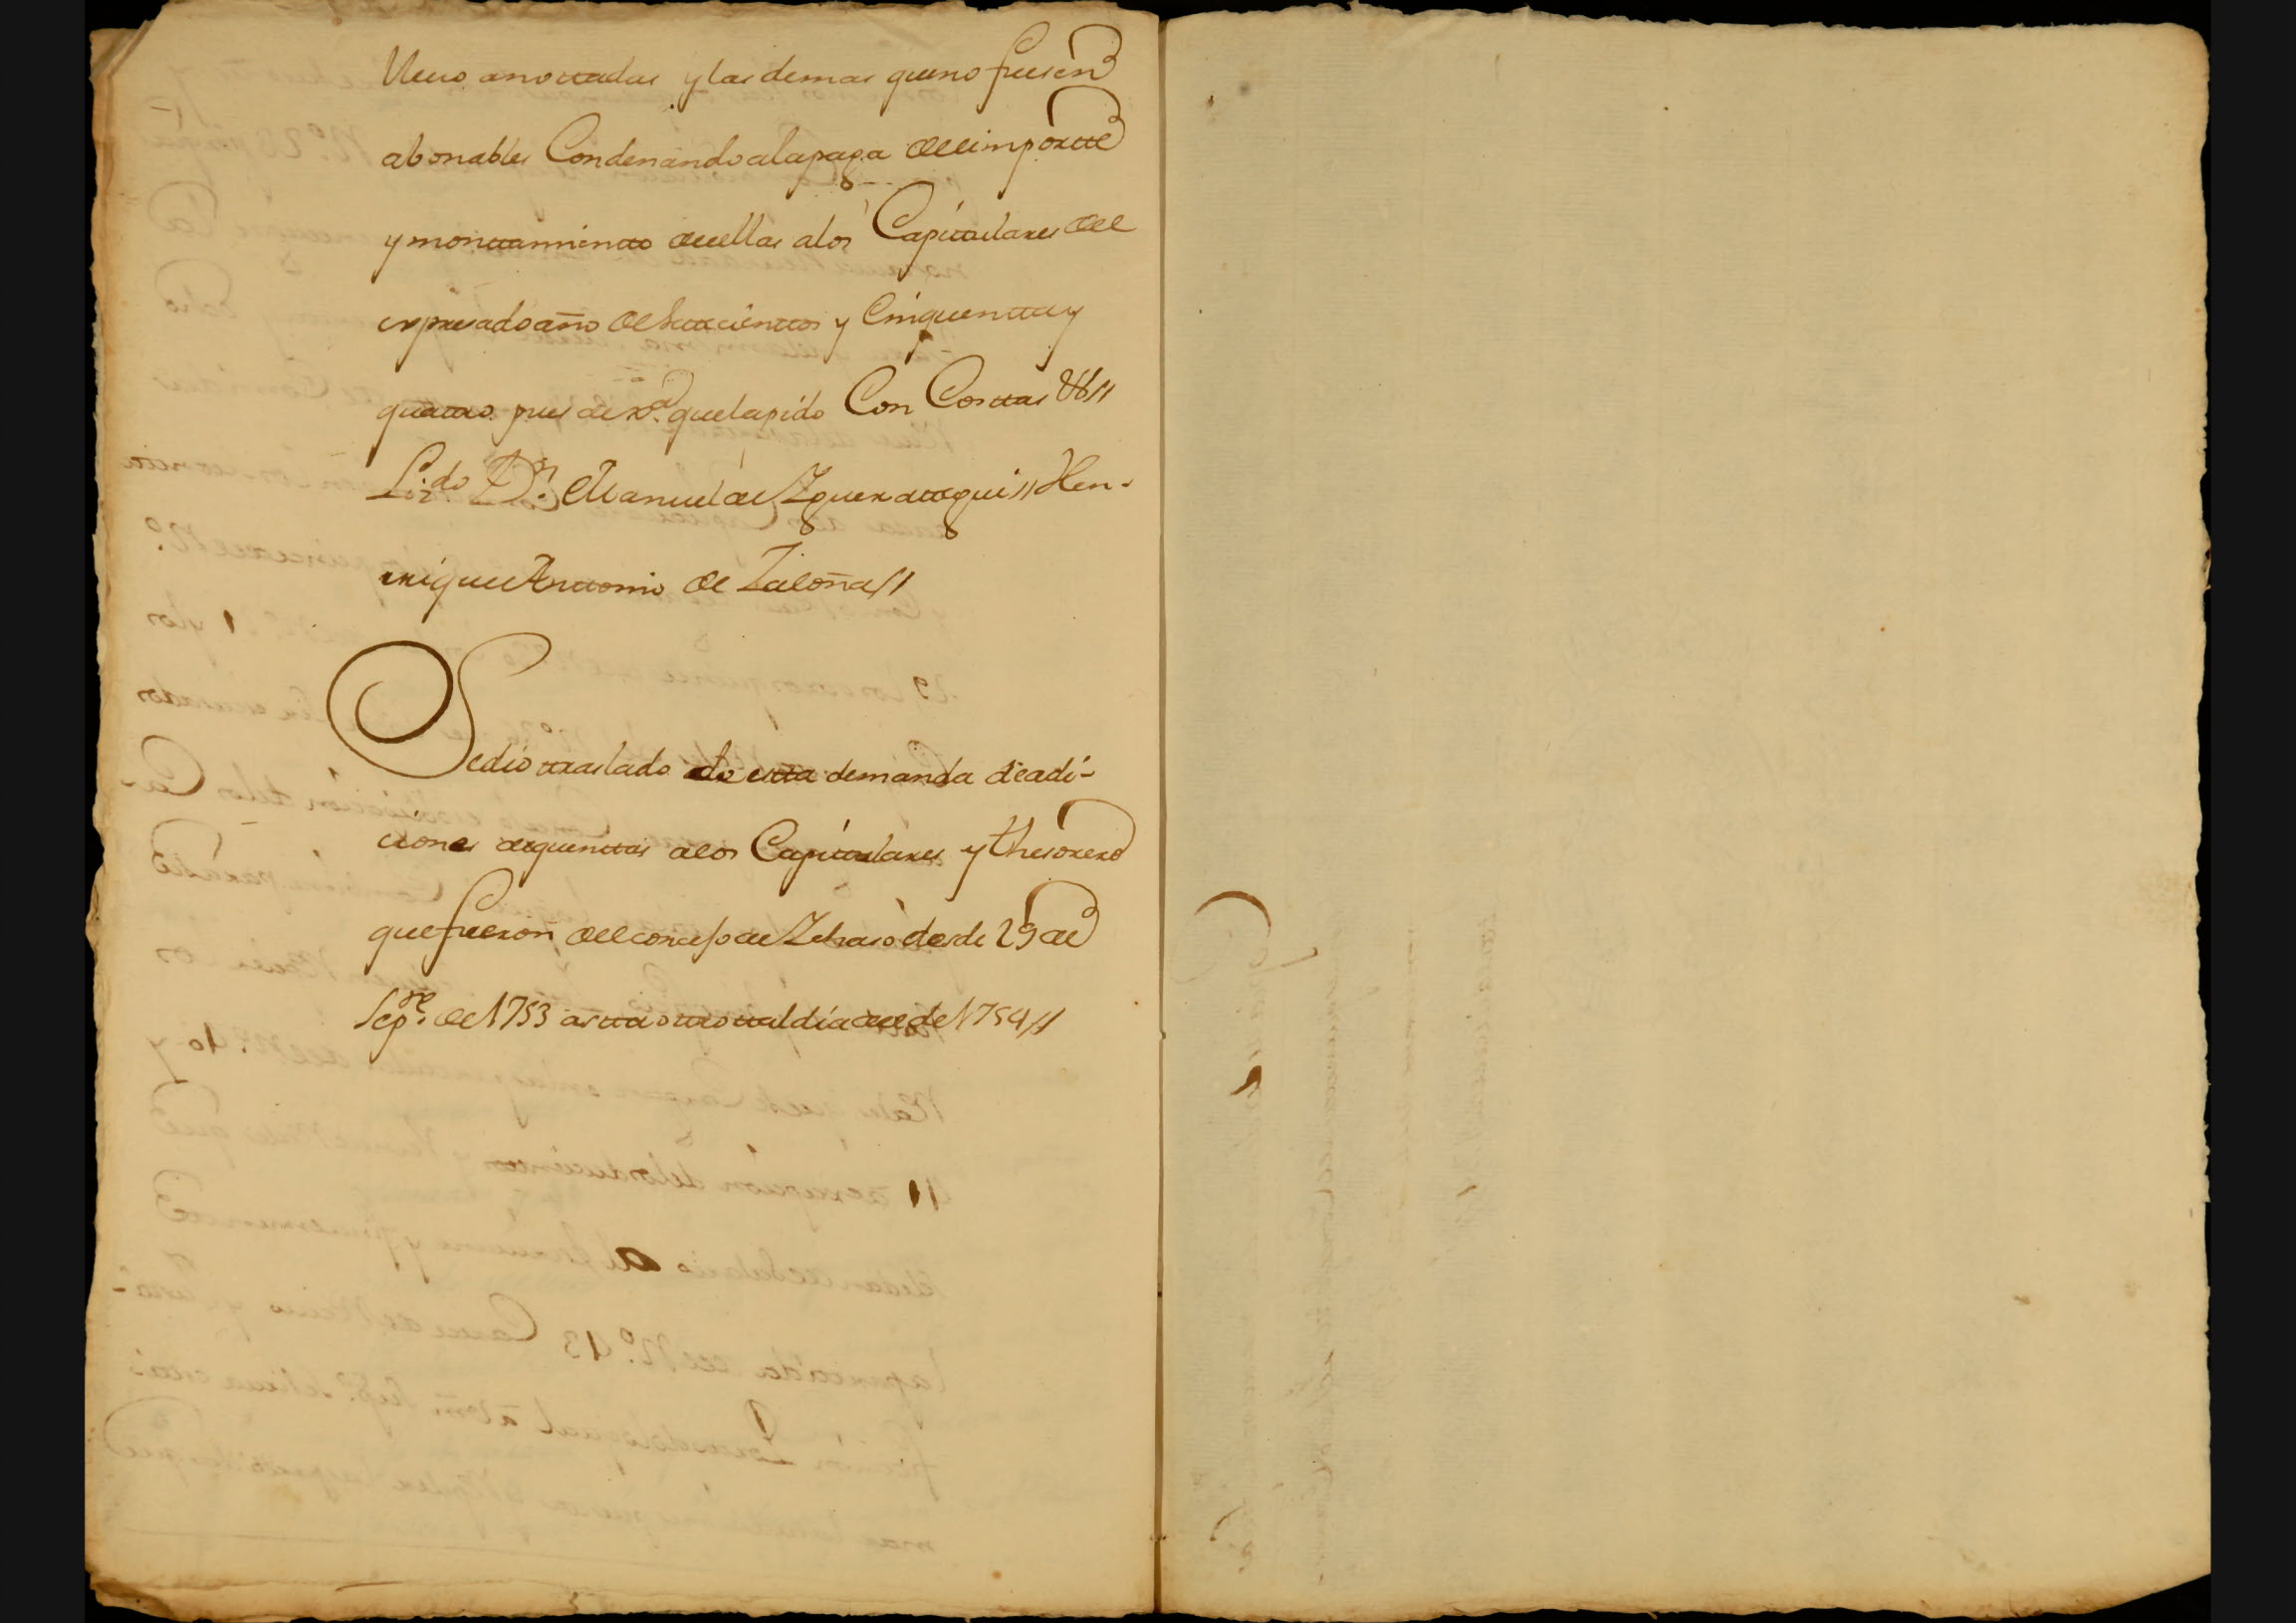 llevo anottadas y las demas queno fuesen
abonables Condenando alapaga del importte
y monttamientto dellas alos Capittulares del
expresado año de settecienttos y Cinquentta y
quattro pues de xª que lapido Con Costtas Vtt //
Lizdo Dn Manuel de Yguerattegui // Hen-
rrique Anttonio de Zaloña //
Sedio traslado de estta demanda deadi-
ciones dequenttas alos Capittulares y thesorero
que fueron del concejo de Zeberio desde 29 de
Sepre de 1753 astta ottro ttal dia del de 1754 //